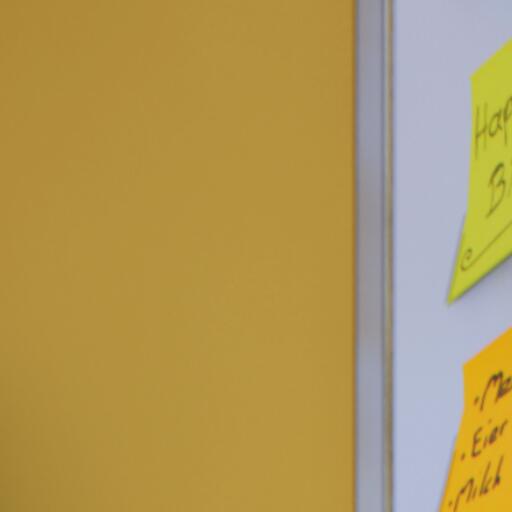 Hap
Bi
· Me
· Eier
· Milch